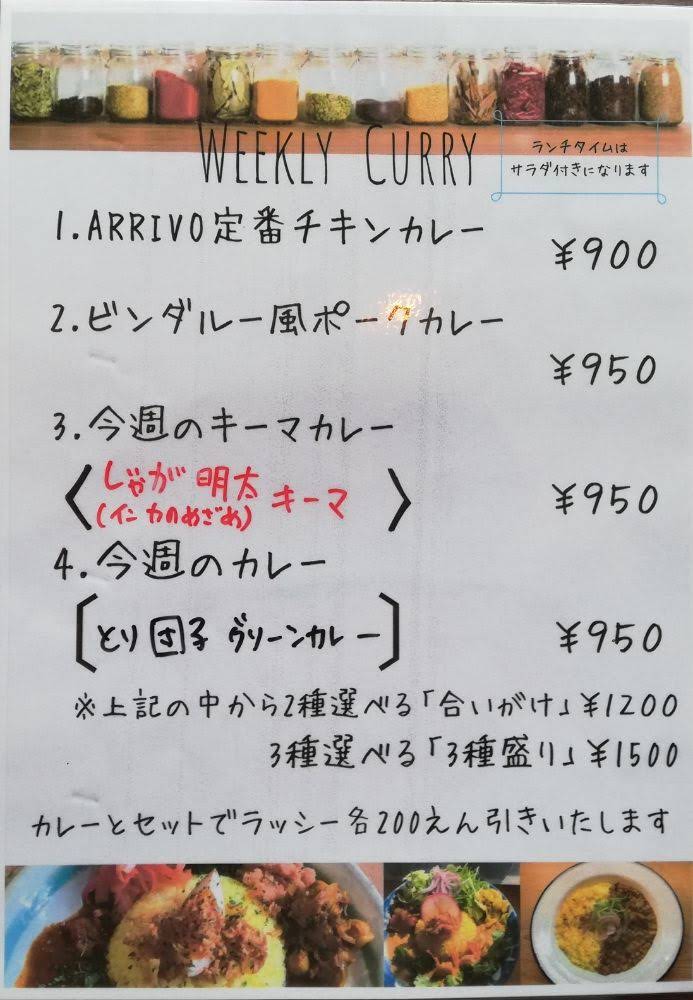 WEEKLY CURRY
ランチタイムは
サラダ付きになります
1.ARRIVO定番チキンカレー
¥900
2.ビンダルー風ポークカレー
¥950
3.今週のキーマカレー
〈じゃが明太キーマ〉
(インカのめざめ)
¥950
4.今週のカレー
[とり団子 グリーンカレー]
¥950
※上記の中から2種選べる「合いがけ」¥1200
3種選べる「3種盛り」¥1500
カレーとセットでラッシー各200えん引きいたします